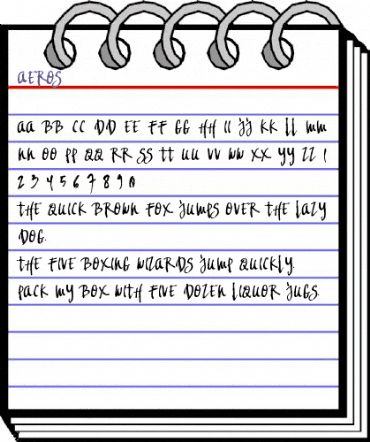 AEROS
aa BB CC DD EE FF GG HH ii jj KK ll mm
nn oo pp QQ RR SS tt uu vv ww xx yy ZZ 1
2 3 4 5 6 7 8 9 0
tHE QUiCK BROwn FOx jumpS OvER tHE lAZy
DOG.
tHE FivE BOxinG wiZARDS jump QUiCKly.
pACK my BOx witH FivE DOZEn liQuOR juGS.